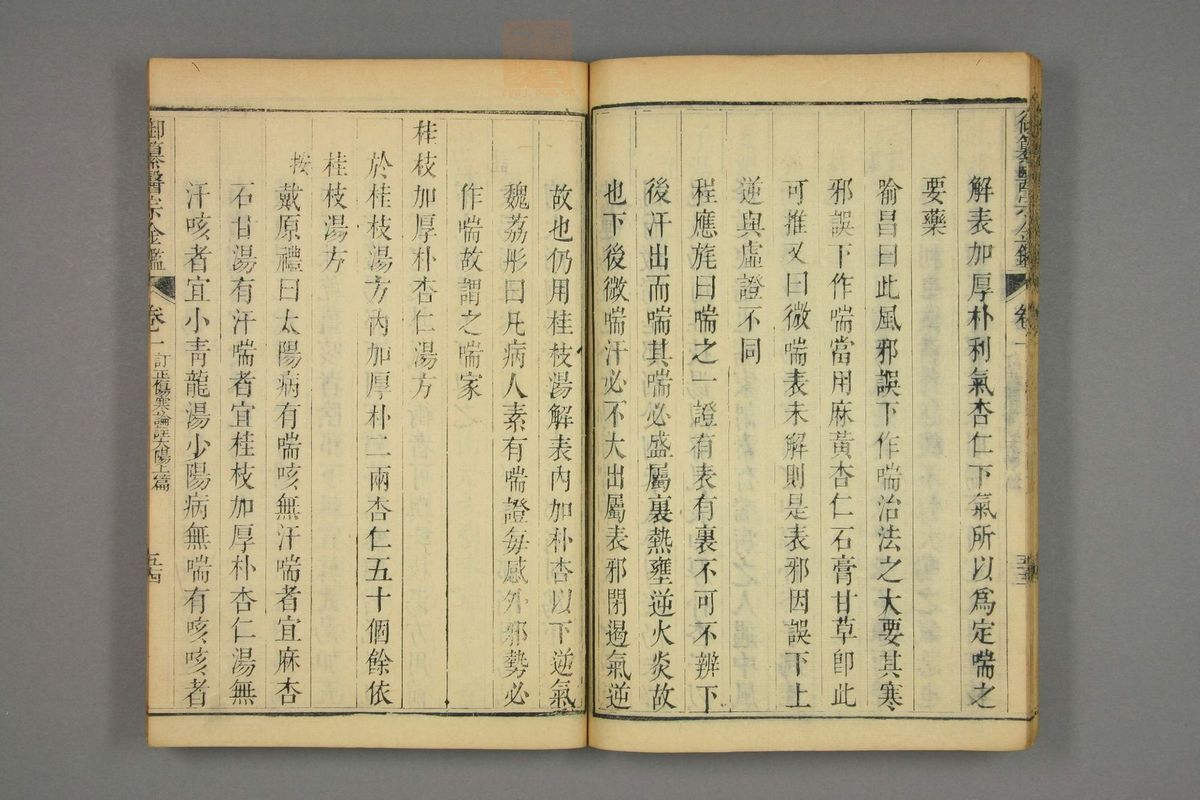 御纂醫宗金鑑
卷一
五十三
解表加厚朴利氣杏仁下氣所以爲定喘之
要藥
喻昌曰此風邪誤下作喘治法之大要其寒
邪誤下作喘當用麻黃杏仁石膏甘草卽此
可推又曰微喘表未解則是表邪因誤下上
逆與虛證不同
程應旄曰喘之一證有表有裏不可不辨下
後汗出而喘其喘必盛屬裏熱壅逆火炎故
也下後微喘汗必不大出屬表邪閉遏氣逆
故也仍用桂枝湯解表內加朴杏以下逆氣
魏荔彤曰凡病人素有喘證每感外邪勢必
作喘故謂之喘家
桂枝加厚朴杏仁湯方
於桂枝湯方內加厚朴二兩杏仁五十個餘依
桂枝湯方
按戴原禮曰太陽病有喘咳無汗喘者宜麻杏
石甘湯有汗喘者宜桂枝加厚朴杏仁湯無
汗咳者宜小青龍湯少陽病無喘有咳咳者
御纂醫宗金鑑
卷一
訂正傷寒論註太陽上篇
五十四